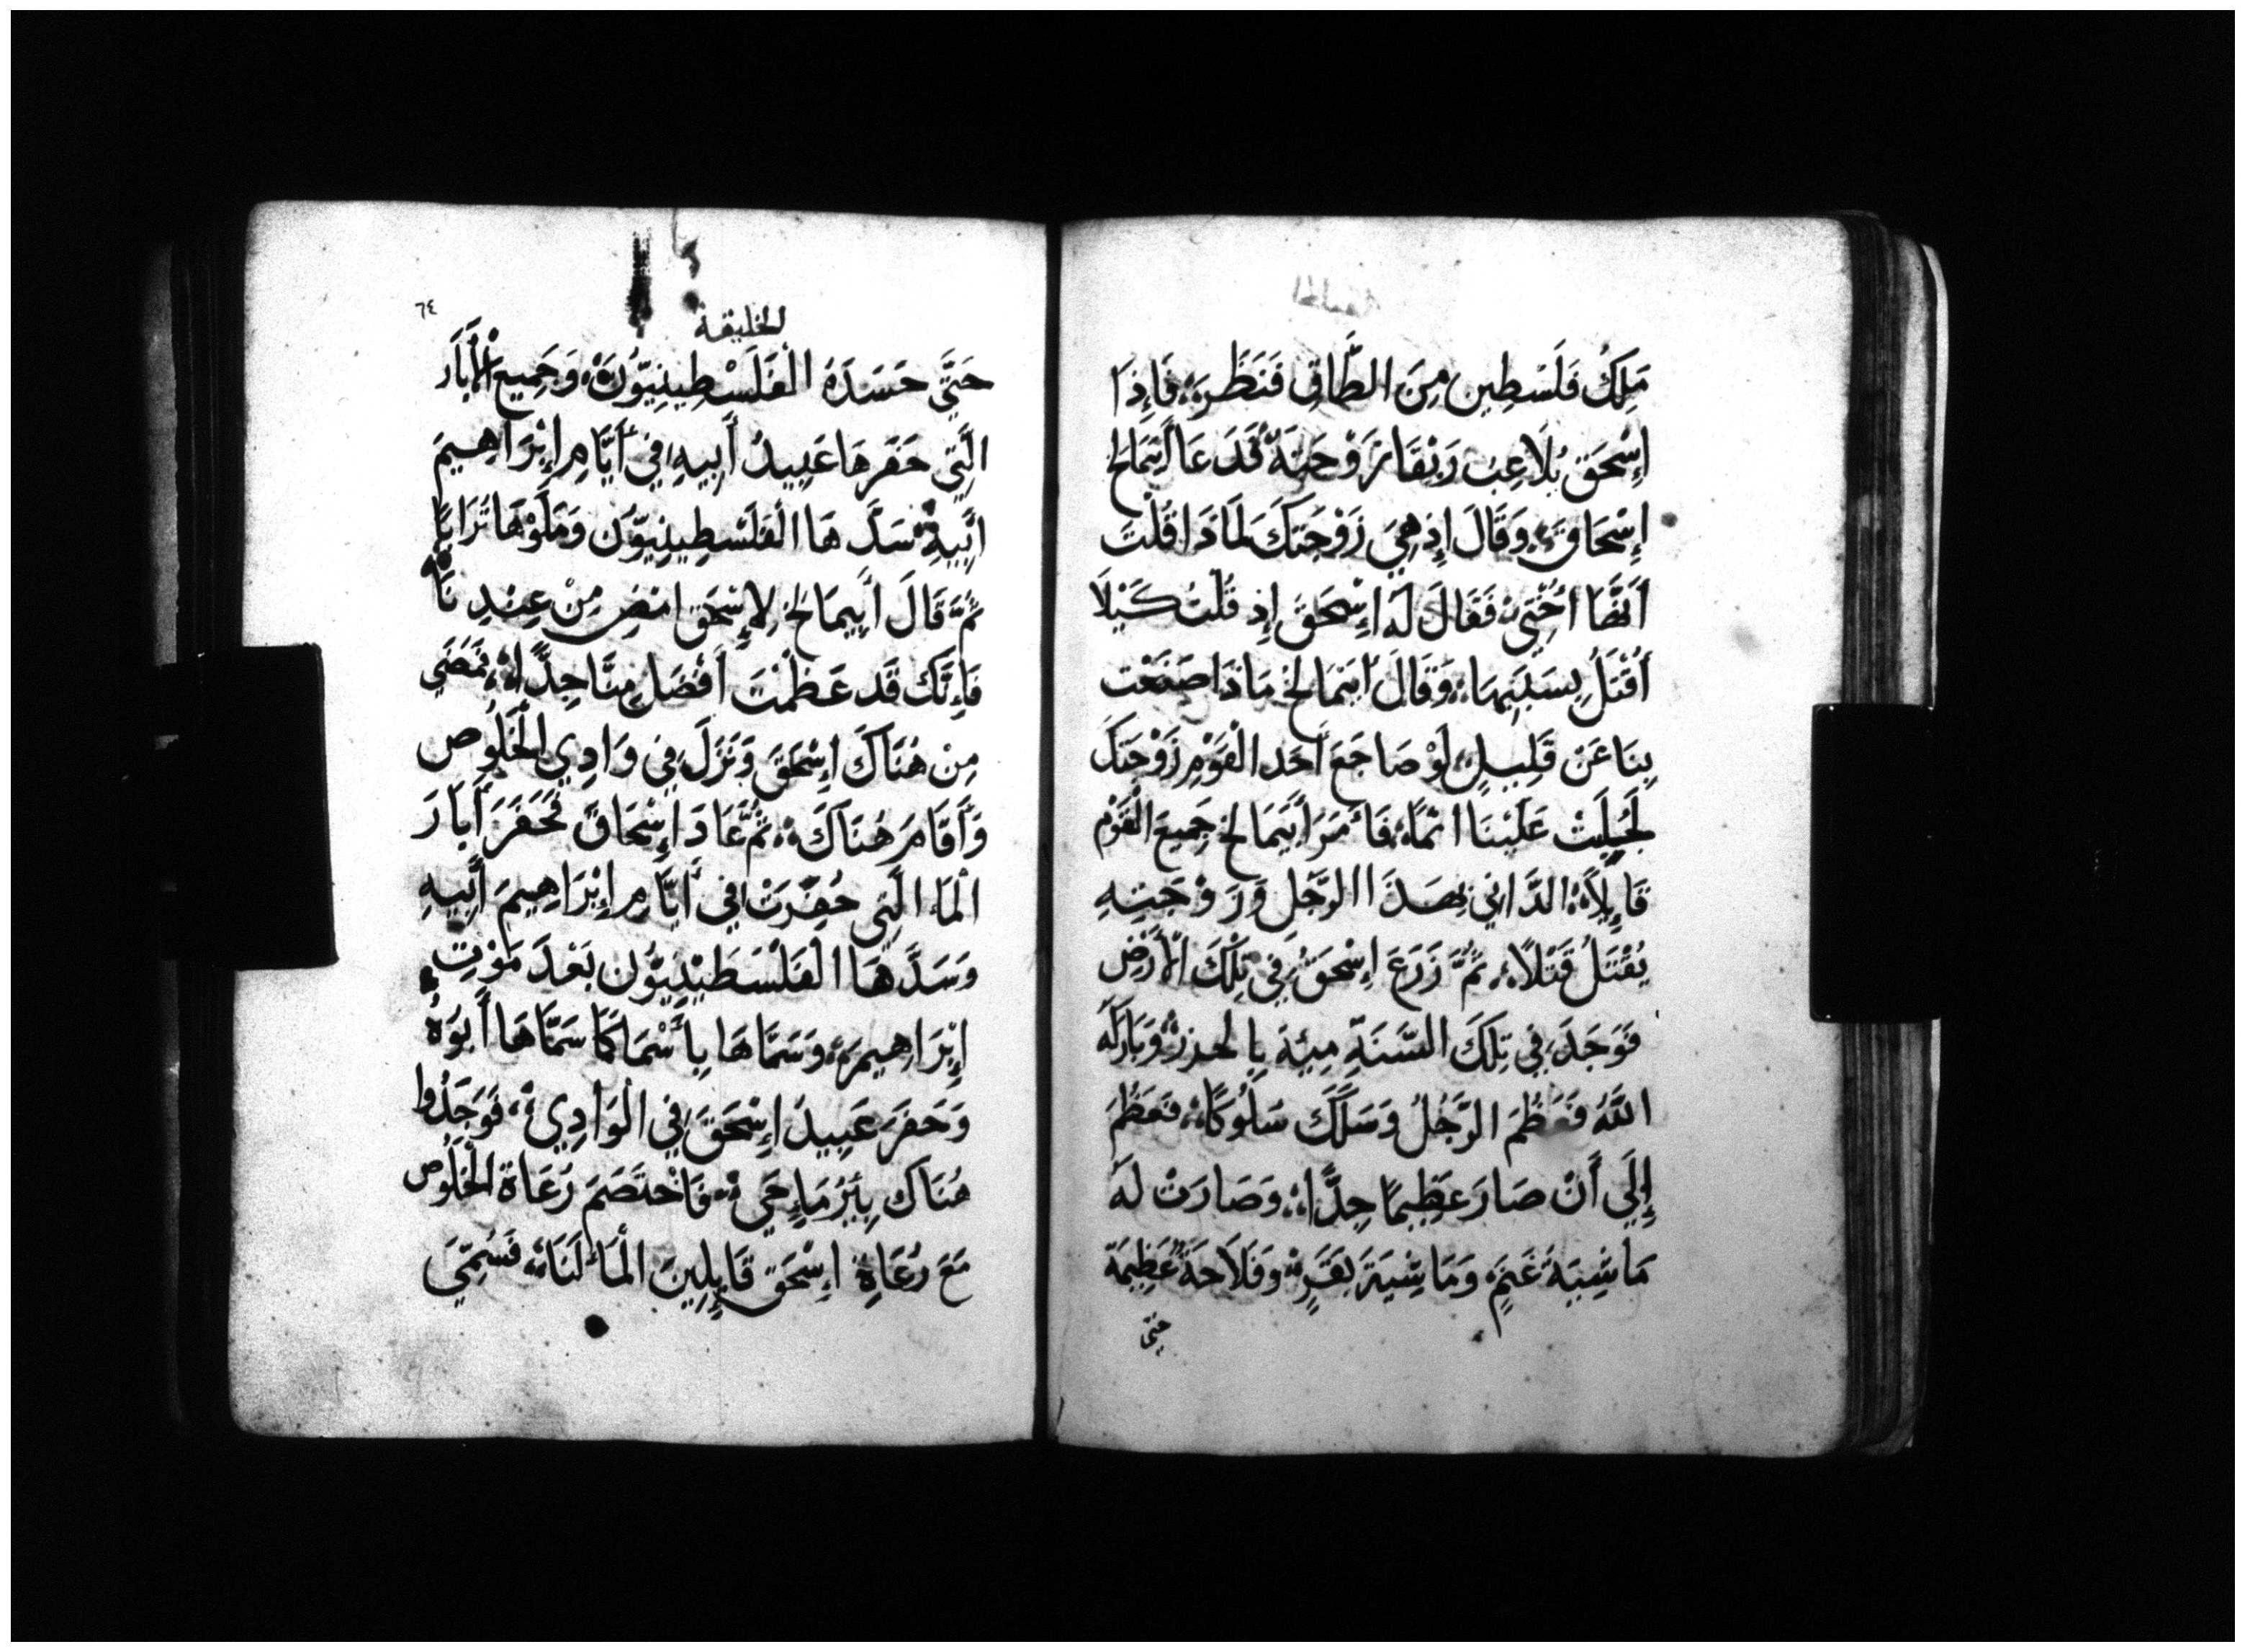 مَلِكُ فَلَسْطِين مِنَ الطَّاقِ فَنَظَرَهْ فَإِذَا
إِسْحَقَ يُلَاعِبُ رَبْقَا زَوْجَتَهْ فَدَعَا أَبِيمَالِخ
إِسْحَاقَ وَقَالَ إِذ هِيَ زَوْجَتَكَ لَمَاذَا قُلْتَ
أَنَّهَا أُخْتِي فَقَالَ لَهُ إِسْحَقَ إِذ قُلْتُ كَيْلَا
أُقْتَلُ بِسَبَبِهَا وَقَالَ أَبِيمَالِخُ مَاذَا صَنَعْت
بِنَا عَنْ قَلِيلٍ لَوْ ضَاجَعَ أَحَد الْقَوْمِ زَوْجَتَكَ
لَجُلِبَتْ عَلَيْنَا اثْمًا فَأَمَرَ أَبِيمَالِخ جَمِيعَ الْقَوْم
قَايِلًا الدَّانِي بِهَذَا الرَّجُلِ وَزَوْجَتِهِ
يُقْتَلُ قَتْلًا ثُمَّ زَرَعَ إِسْحَقُ فِي تِلْكَ الْأَرْضِ
فَوَجَدَ فِي تِلْكَ السَّنَةِ مِيَّة بِالحدز وَبَارَكَهُ
اللَّهُ فَعَظُمَ الرَّجُلُ وَسَلَكَ سَلُوكًا فَعَظُمَ
إِلَى أَنْ صَارَ عَظِيمًا جِدًّا وَصَارَتْ لَهُ
مَاشِيَةَ غَنَمٍ وَمَاشِيَةَ بَقَرٍ وَفَلَاحَةً عَظِيمَة
حتى
٦٤
الخليقة
حَتَّي حَسَدَهُ الْفَلَسْطِينِيُّونَ وَجَمِيع الْأَبَار
الَّتِي حَفَرهَا عَبِيدُ أَبِيهِ فِي أَيَّامِ إِبْرَاهِيمَ
ابِيهِ سَدَّهَا الْفَلَسْطِينِيُّون وَمَلَوْهَا تُرَابًا
ثُمَّ قَالَ أَبِيمَالِخ لِإِسْحَق امْضِ مِنْ عِنْدِنَا
فَإِنَّكَ قَد عَظُمْتَ أَفْضَل مِنَّا جِدًّا فَمَضَي
مِن هُنَاكَ إِسْحَقَ وَنَزَلَ فِي وَادِي الْخَلُوص
وَأَقَامَ هُنَاكَ ثُمَّ عَادَ إِسْحَاق فَحَفَرَ أَبَارَ
الْمَاء الَّتِي حُفِرَتْ فِي أَيَّامِ إِبْرَاهِيمَ أَبِيهِ
وَسَدَّهَا الْفَلَسْطِينِيُّون بَعْدَ مَوْتِ
إِبْرَاهِيمَ وَسَمَّاهَا بِأَسْمَا كَمَا سَمَّاهَا أَبُوهُ
وَحَفَرَ عَبِيدُ إِسْحَقَ فِي الْوَادِي فَوَجَدُوا
هُنَاكَ بِئْرُ مَاءٍ حَيّ فَاخْتَصَمَ رُعَاة الْخَلُوص
مَعَ رُعَاةِ إِسْحَق قَايِلِينَ الْمَاء لَنَا فَسُمِّيَ